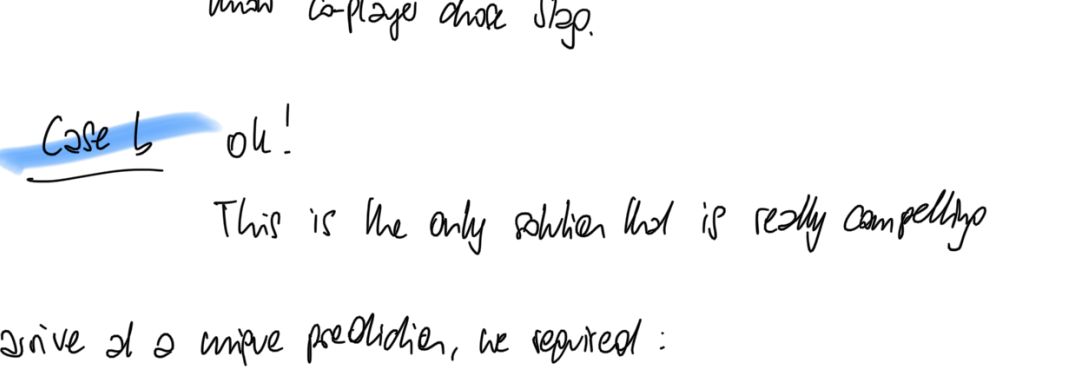 co-player chose stop.
Case b ok!
This is the only solution that is really compelling
arrive at a unique prediction, we required :